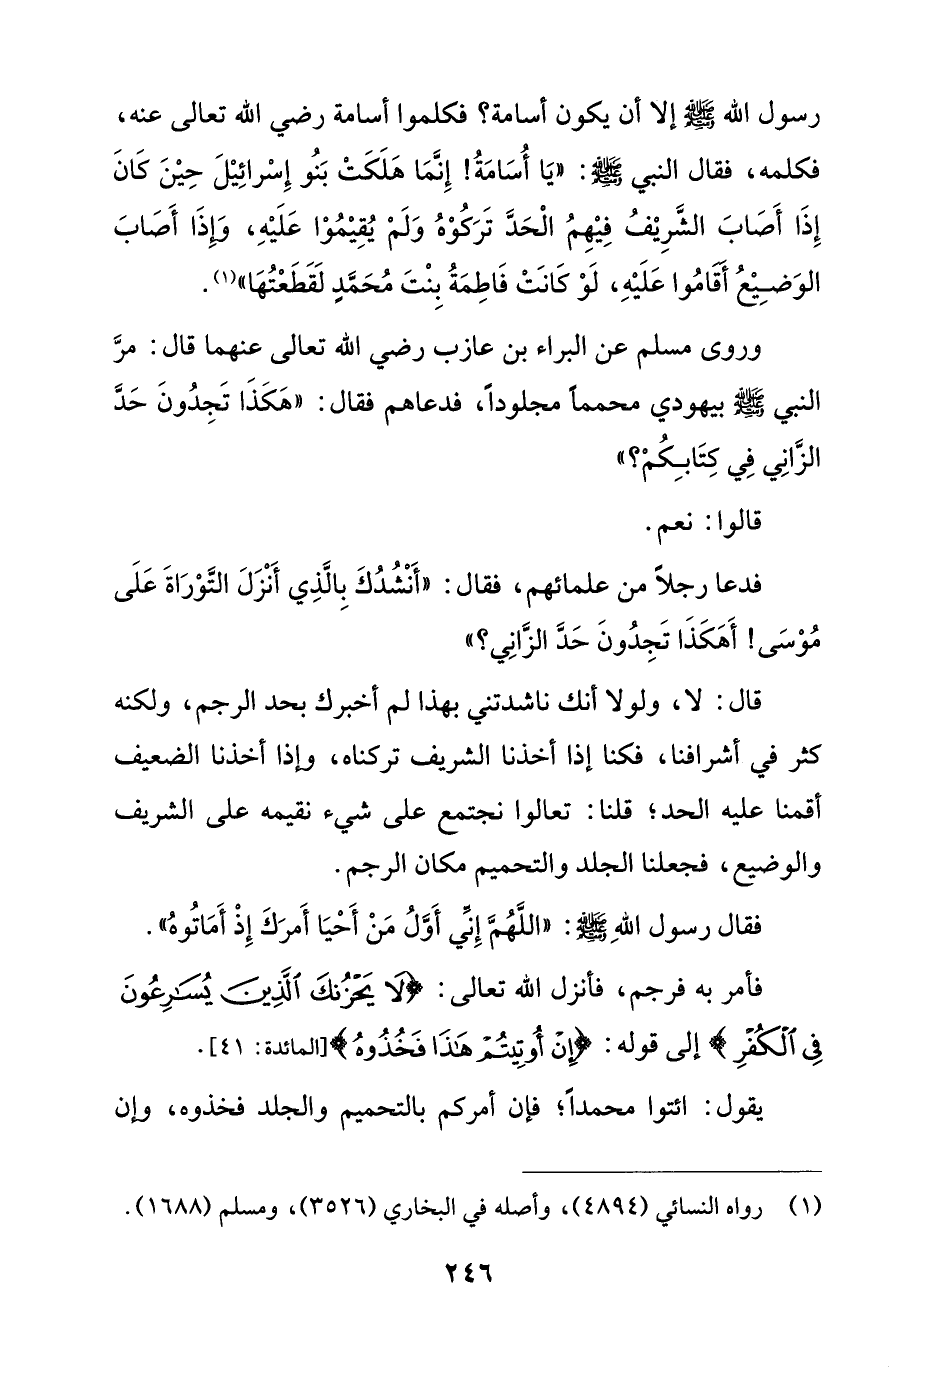 رسول الله ﷺ إلا أن يكون أسامة؟ فكلموا أسامة رضي الله تعالى عنه،
فكلمه، فقال النبي ﷺ: «يَا أُسَامَةُ! إِنَّمَا هَلَكَتْ بَنُو إِسْرائِيْلَ حِيْنَ كَانَ
إِذَا أَصَابَ الشَّرِيْفُ فِيْهِمُ الْحَدَّ تَرَكُوْهُ وَلَمْ يُقِيْمُوْا عَلَيْهِ، وَإِذَا أَصَابَ
الوَضِيْعُ أَقَامُوا عَلَيْهِ، لَوْ كَانَتْ فَاطِمَةُ بِنْتَ مُحَمَّدٍ لَقَطَعْتُهَا»(١).
وروى مسلم عن البراء بن عازب رضي الله تعالى عنهما قال: مرَّ
النبي ﷺ بيهودي محمماً مجلوداً، فدعاهم فقال: «هَكَذَا تَجِدُونَ حَدَّ
الزَّانِي فِي كِتَابِكُمْ؟»
قالوا: نعم.
فدعا رجلاً من علمائهم، فقال: «أَنْشُدُكَ بِالَّذِي أَنْزَلَ التَّوْرَاةَ عَلَى
مُوْسَى! أَهَكَذَا تَجِدُونَ حَدَّ الزَّانِي؟»
قال: لا، ولولا أنك ناشدتني بهذا لم أخبرك بحد الرجم، ولكنه
كثر في أشرافنا، فكنا إذا أخذنا الشريف تركناه، وإذا أخذنا الضعيف
أقمنا عليه الحد؛ قلنا: تعالوا نجتمع على شيء نقيمه على الشريف
والوضيع، فجعلنا الجلد والتحميم مكان الرجم.
فقال رسول اللهِ ﷺ: «اللَّهُمَّ إِنِّي أَوَّلُ مَنْ أَحْيَا أَمرَكَ إِذْ أَمَاتُوهُ».
فأمر به فرجم، فأنزل الله تعالى: ﴿لَا يَحْزُنكَ ٱلَّذِينَ يُسَٰرِعُونَ
فِى ٱلْكُفْرِ﴾ إلى قوله: ﴿إِنْ أُوتِيتُمْ هَٰذَا فَخُذُوهُ﴾[المائدة: ٤١].
يقول: ائتوا محمداً؛ فإن أمركم بالتحميم والجلد فخذوه، وإن
(١) رواه النسائي (٤٨٩٤)، وأصله في البخاري (٣٥٢٦)، ومسلم (١٦٨٨).
٢٤٦